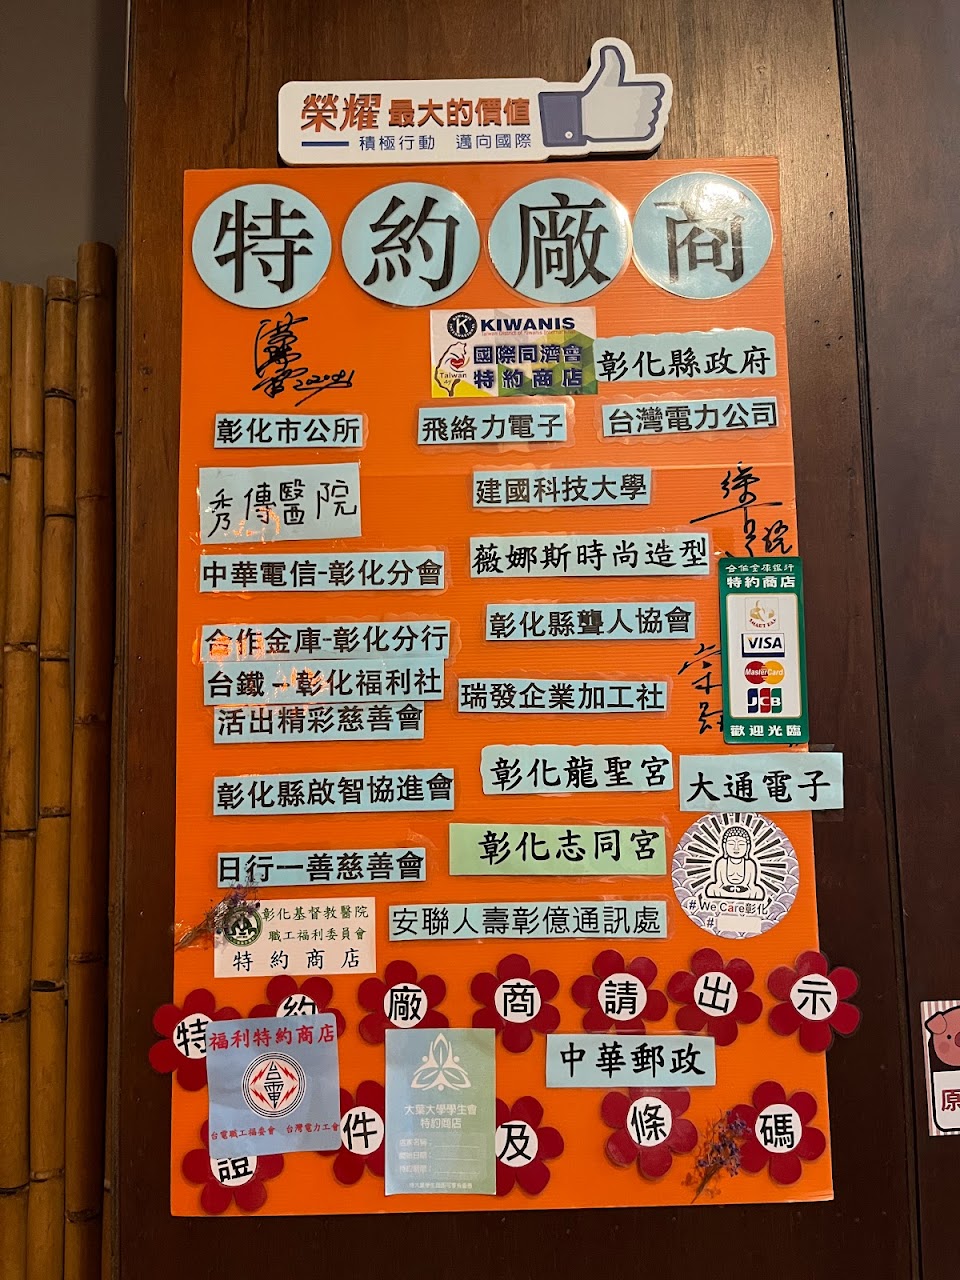 榮耀 最大的價值
積極行動 邁向國際
特約廠商
KIWANIS
Taiwan
國際同濟會
特約商店
彰化縣政府
彰化市公所
飛絡力電子
台灣電力公司
秀傳醫院
建國科技大學
中華電信-彰化分會
薇娜斯時尚造型
合作金庫銀行
特約商店
VISA
MasterCard
JCB
歡迎光臨
合作金庫-彰化分行
彰化縣聾人協會
台鐵-彰化福利社
活出精彩慈善會
瑞發企業加工社
彰化縣啟智協進會
彰化龍聖宮
大通電子
彰化志同宮
日行一善慈善會
#We Care彰化
彰化基督教醫院
職工福利委員會
特約商店
安聯人壽彰億通訊處
特約廠商請出示
福利特約商店
台電
台電職工福委會 台灣電力工會
大葉大學學生會
特約商店
店家名稱:
開始日期:
特約期間:
中華郵政
證件及條碼
原